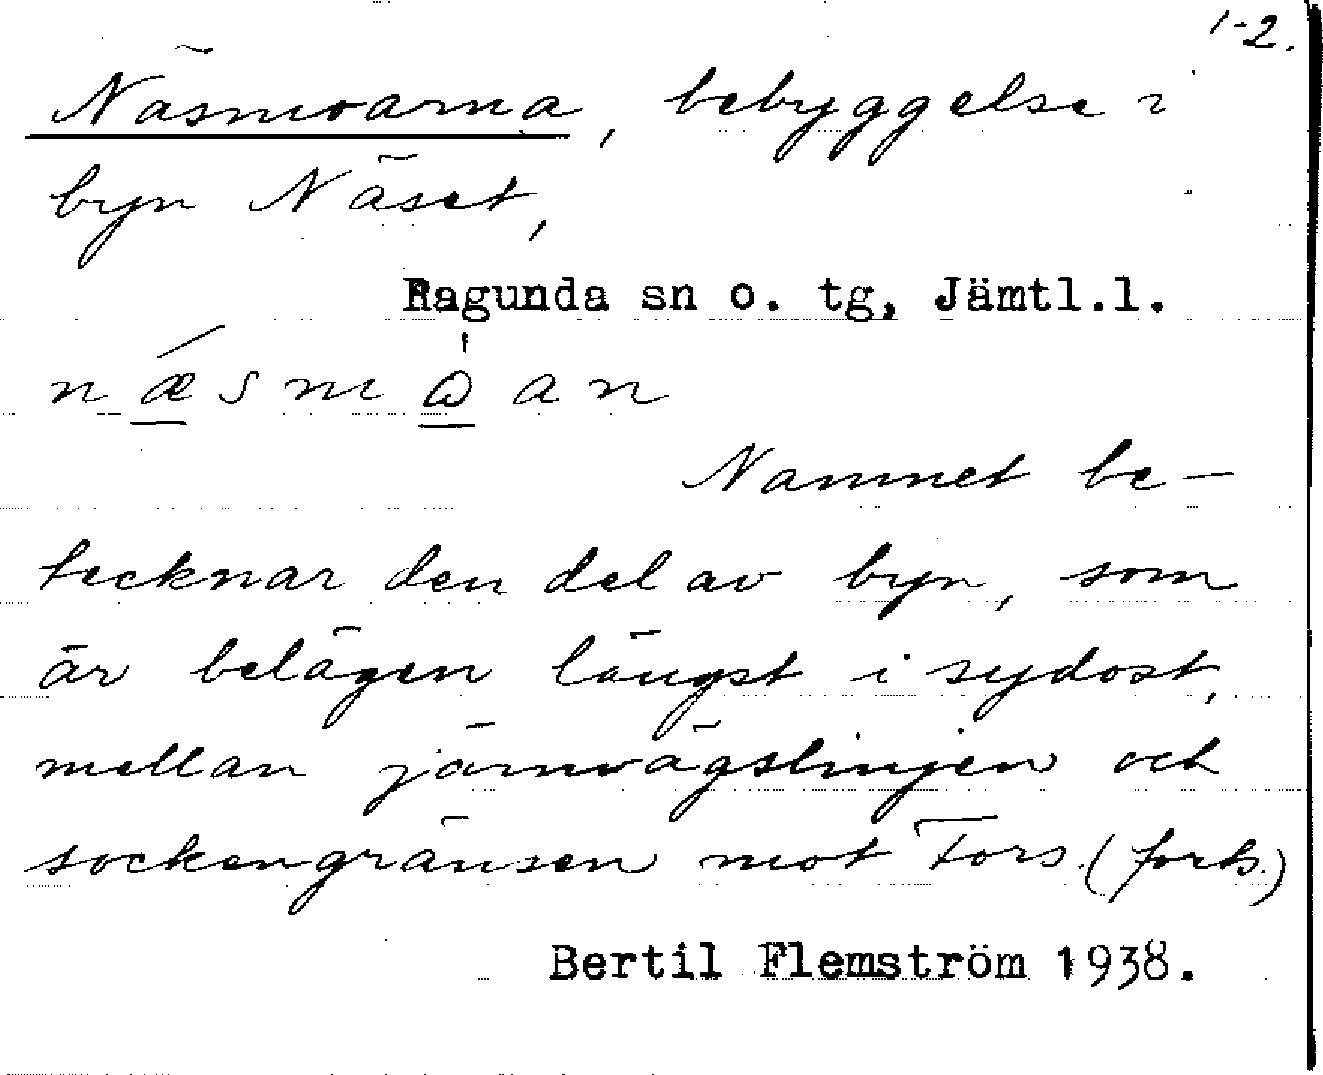 1-2.
Näsmoarna, bebyggelse i
byn Näset,
Ragunda sn o. tg, Jämtl.l.
Namnet be-
tecknar den del av byn, som
är belägen längst i sydost,
mellan järnvägslinjen och
sockengränsen mot Fors. (forts.)
Bertil Flemström 1938.